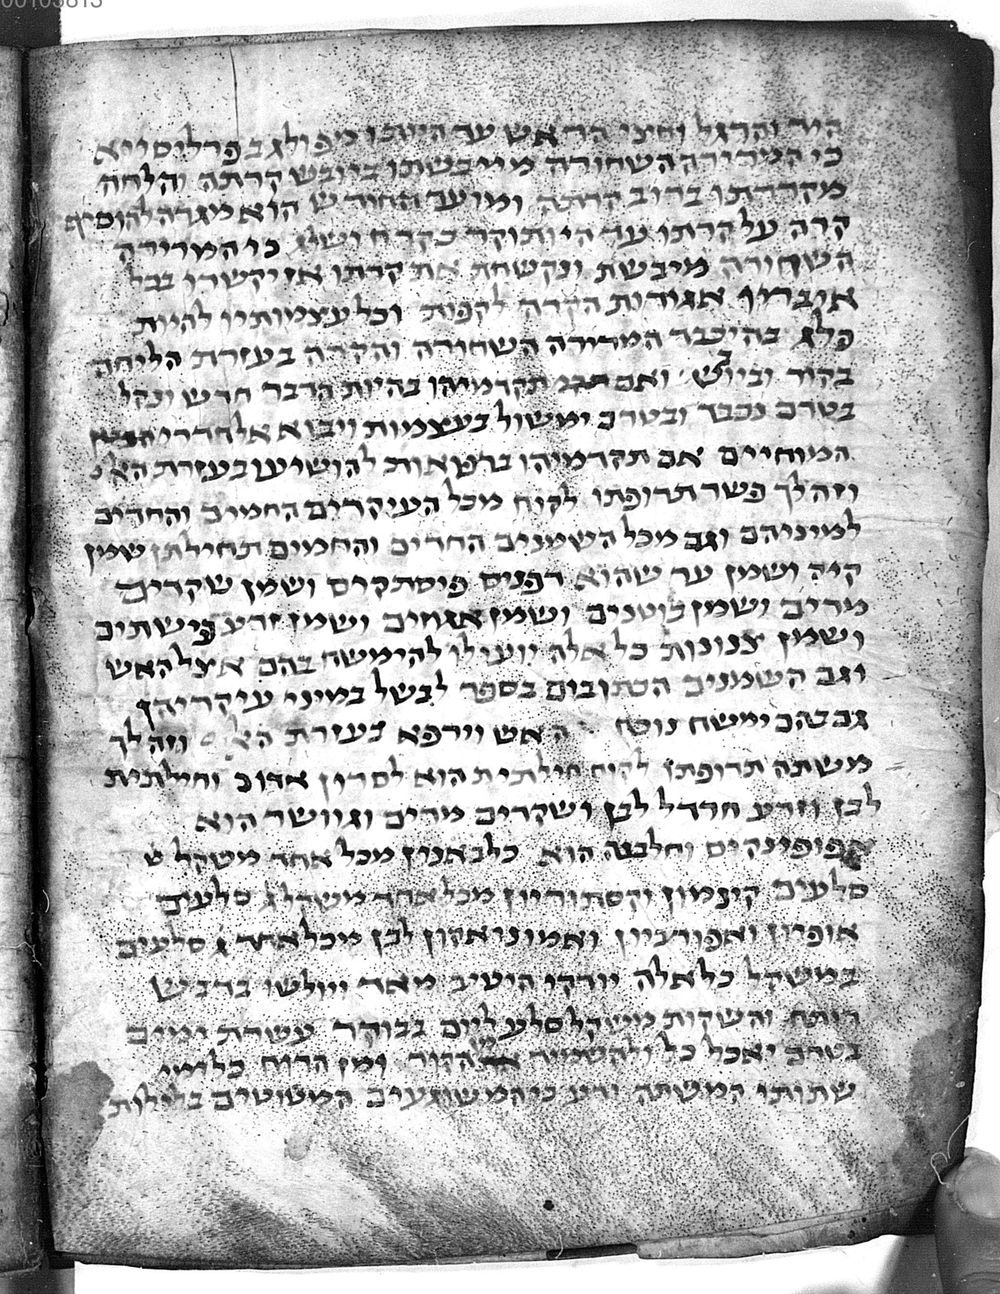 היד והרגל וחצי הראש עד היותו מפולג בפרלוסייא
כי המרירה השחורה מייבשתו ביובש קרתה והלחה
מקררתו ברוב קרתה ומועד החודש הוא מגרה להוסיף
קרה על קרתו עד היותו קר כקרח ושלג כי המרירה
השחורה מיבשת ונקשחת את קרתו אז יקשרו בכל
איבריו אגודות הקרה לקפות וכל עצמותיו להיות
פלג בהיכבד המרירה השחורה והקרה בעזרת הליחה
בקור וביובש ואם תקדמיהו בהיות הדבר חדש ונקל
בטרם נכבד ובטרם ימשול בעצמות ויבוא אל חדרי
המוחיים אם תקדמיהו ברפואות להושיעו בעזרת האל
וזה לך פשר תרופתו לקוח מכל העיקרים החמים והחדים
למיניהם וגם מכל השמנים החדים והחמים תחילתן שמן
קיק ושמן ער שהוא דפנים פיסתקים ושמן שקדים
מרים ושמן בוטנים ושמן אגוזים ושמן זרע פישתים
ושמן צנונות כל אלה יועילו להימשח בהם אצל האש
וגם השמנים הכתובים בספר לבשל במיני עיקריהן
גם בהם ימשח נוכח האש וירפא בעזרת האל וזה לך
משתה תרופתו לקוח חילתית הוא לסרון אדום וחילתית
לבן וזרע חרדל לבן ושקדים מרים וגוושר הוא
אפופינקיס וחלבנה הוא כלבאנון מכל אחד משקל
סלעים קינמון וקסתוריון מכל אחד משקל ג סלעים
אופיון ואפורביון ואמוניאקון לבן מכל אחד ג סלעים
במשקל כל אלה יודקו היטיב מאד ויולשו בדבש
רותח והשקות משקל סלע ליום בבוקר עשרת ימים
בטרם יאכל כל ולהשמר מן הקור ומן הרוח כל ימי
שתותו המשתה ודע כי המשוגעים המשוטים בלילות